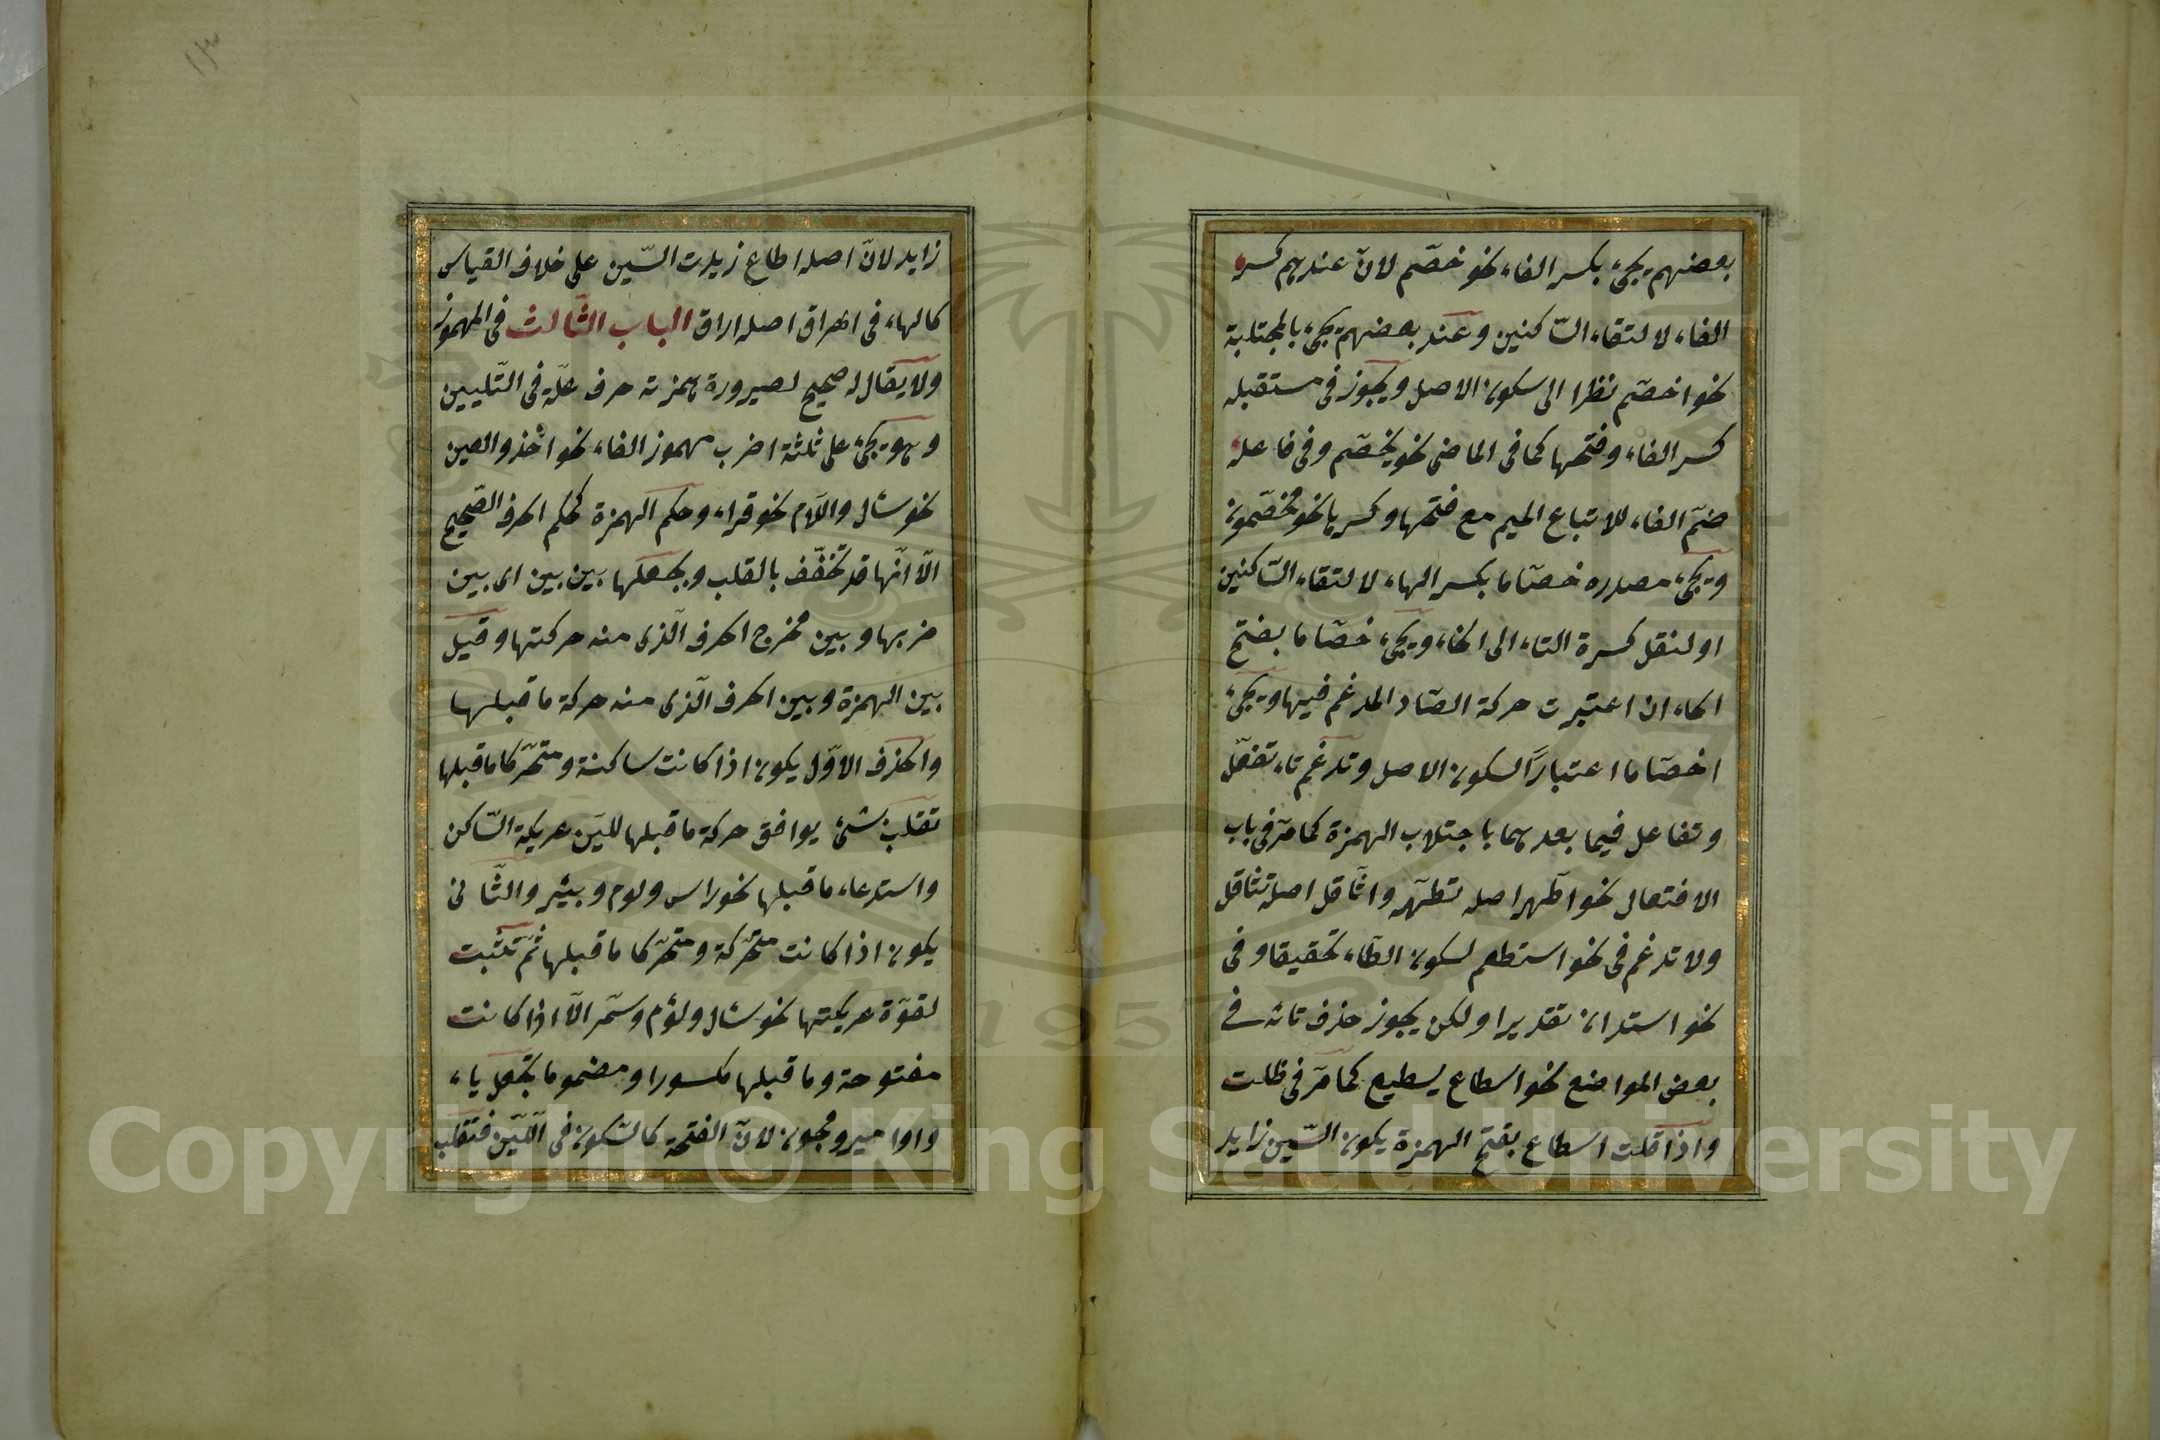 بعضهم يجئ بكسر الفاء نحو خصّم لانّ عندهم كسر
الفاء لالتقاء السّاكنين وعند بعضهم يجئ بالمجتلبة
نحو اخصّم نظرا الى سكون الاصل ويجوز فى مستقبله
كسر الفاء وفتحها كما فى الماضى نحو يخصّم وفى فاعله
ضمّ الفاء للاتباع الميم مع فتحها وكسرها نحو مخصّمون
ويجئ مصدره خصّاما بكسر الهاء لالتقاء السّاكنين
او لنقل كسرة التاء الى الخاء ويجئ خصّاما بفتح
الخاء ان اعتبرت حركة الصّاد المدغم فيها ويجئ
اخصّاما اعتبارًا لسكون الاصل وتدغم تاء تفعّل
وتفاعل فيما بعدهما باجتلاب الهمزة كما مرّ فى باب
الافتعال نحو اطّهر اصله تطهّر واثّاقل اصله تثاقل
ولا تدغم فى نحو استطعم لسكون الطّاء تحقيقا وفى
نحو استدان تقديرا ولكن يجوز حذف تائه فى
بعض المواضع نحو اسطاع يسطيع كما مرّ فى ظلت
واذا قلت اسطاع بفتح الهمزة يكون السّين زايد
١٣
زايد لانّ اصله اطاع زيدت السّين على خلاف القياس
كالهاء فى اهراق اصله اراق الباب الثّالث فى المهموز
ولا يقال له صحيح لصيرورة همزته حرف علّة فى التّليين
وهو يجئ على ثلثة اضرب مهموز الفاء نحو اخذ والعين
نحو سئال واللّام نحو قراء وحكم الهمزة كحكم الحرف الصّحيح
الّا انّها قد تخفّف بالقلب وبجعلها بين بين اى بين
مخرجها وبين مخرج الحرف الّذى منه حركتها وقيل
بين الهمزة وبين الحرف الّذى منه حركة ما قبلها
والحذف الاوّل يكون اذا كانت ساكنة ومتحرّكا ما قبلها
تقلب بشئ يوافق حركة ما قبلها للين عريكة السّاكن
واستدعاء ما قبلها نحو راس ولوم وبئر والثّانى
يكون اذا كانت متحرّكة ومتحرّكا ما قبلها ثمّ تثبت
لقوّة عريكتها نحو سئال ولؤم وسئم الّا اذا كانت
مفتوحة وما قبلها مكسورا ومضموما تجعل ياء
واوا مير وجون لانّ الفتحة كالسّكون فى اللّين فتقلب
Copyright © King Saud University
1957